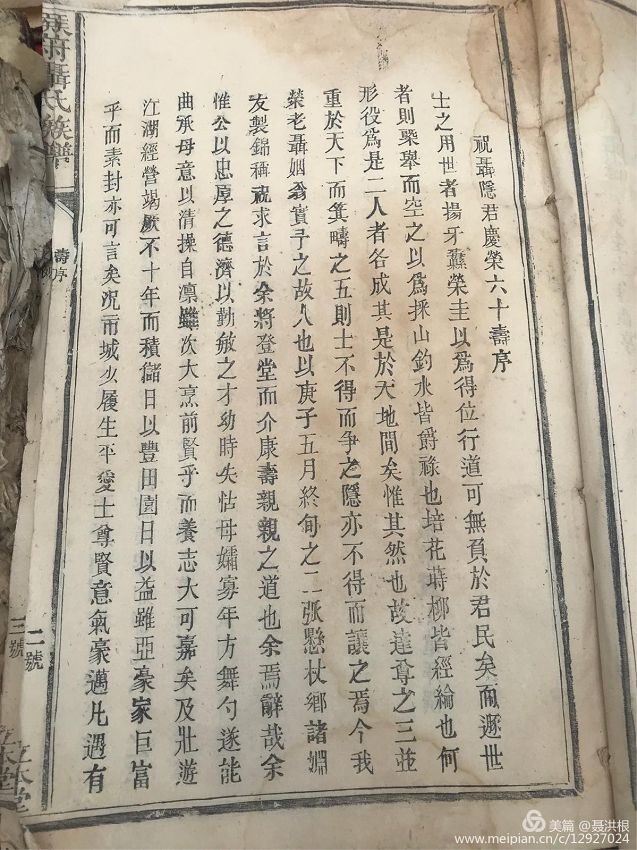 祝聶隱君慶榮六十壽序
士之用世者揚牙纛榮圭以爲得位行道可無負於君民矣而遯世
者則槩舉而空之以爲採山釣水皆爵祿也培花蒔柳皆經綸也何
形役爲是二人者各成其是於天地間矣惟其然也故達尊之三並
重於天下而箕疇之五則士不得而爭之隱亦不得而讓之焉今我
榮老聶姻翁實予之故人也以庚子五月終旬之二張懸杖鄉諸姻
友製錦稱祝求言於余將登堂而介康壽親親之道也余焉辭哉余
惟公以忠厚之德濟以勤敏之才幼時失怙母孀寡年方舞勺遂能
曲承母意以清操自凛雖次大烹前賢乎而養志大可嘉矣及壯遊
江湖經營竭蹶不十年而積儲日以豐田園日以益雖亞豪家巨富
乎而素封亦可言矣况市城少履生平愛士尊賢意氣豪邁凡遇有
聶氏族譜
壽序
二號
三號
立本堂
美篇 @聂洪根
www.meipian.cn/c/12927024